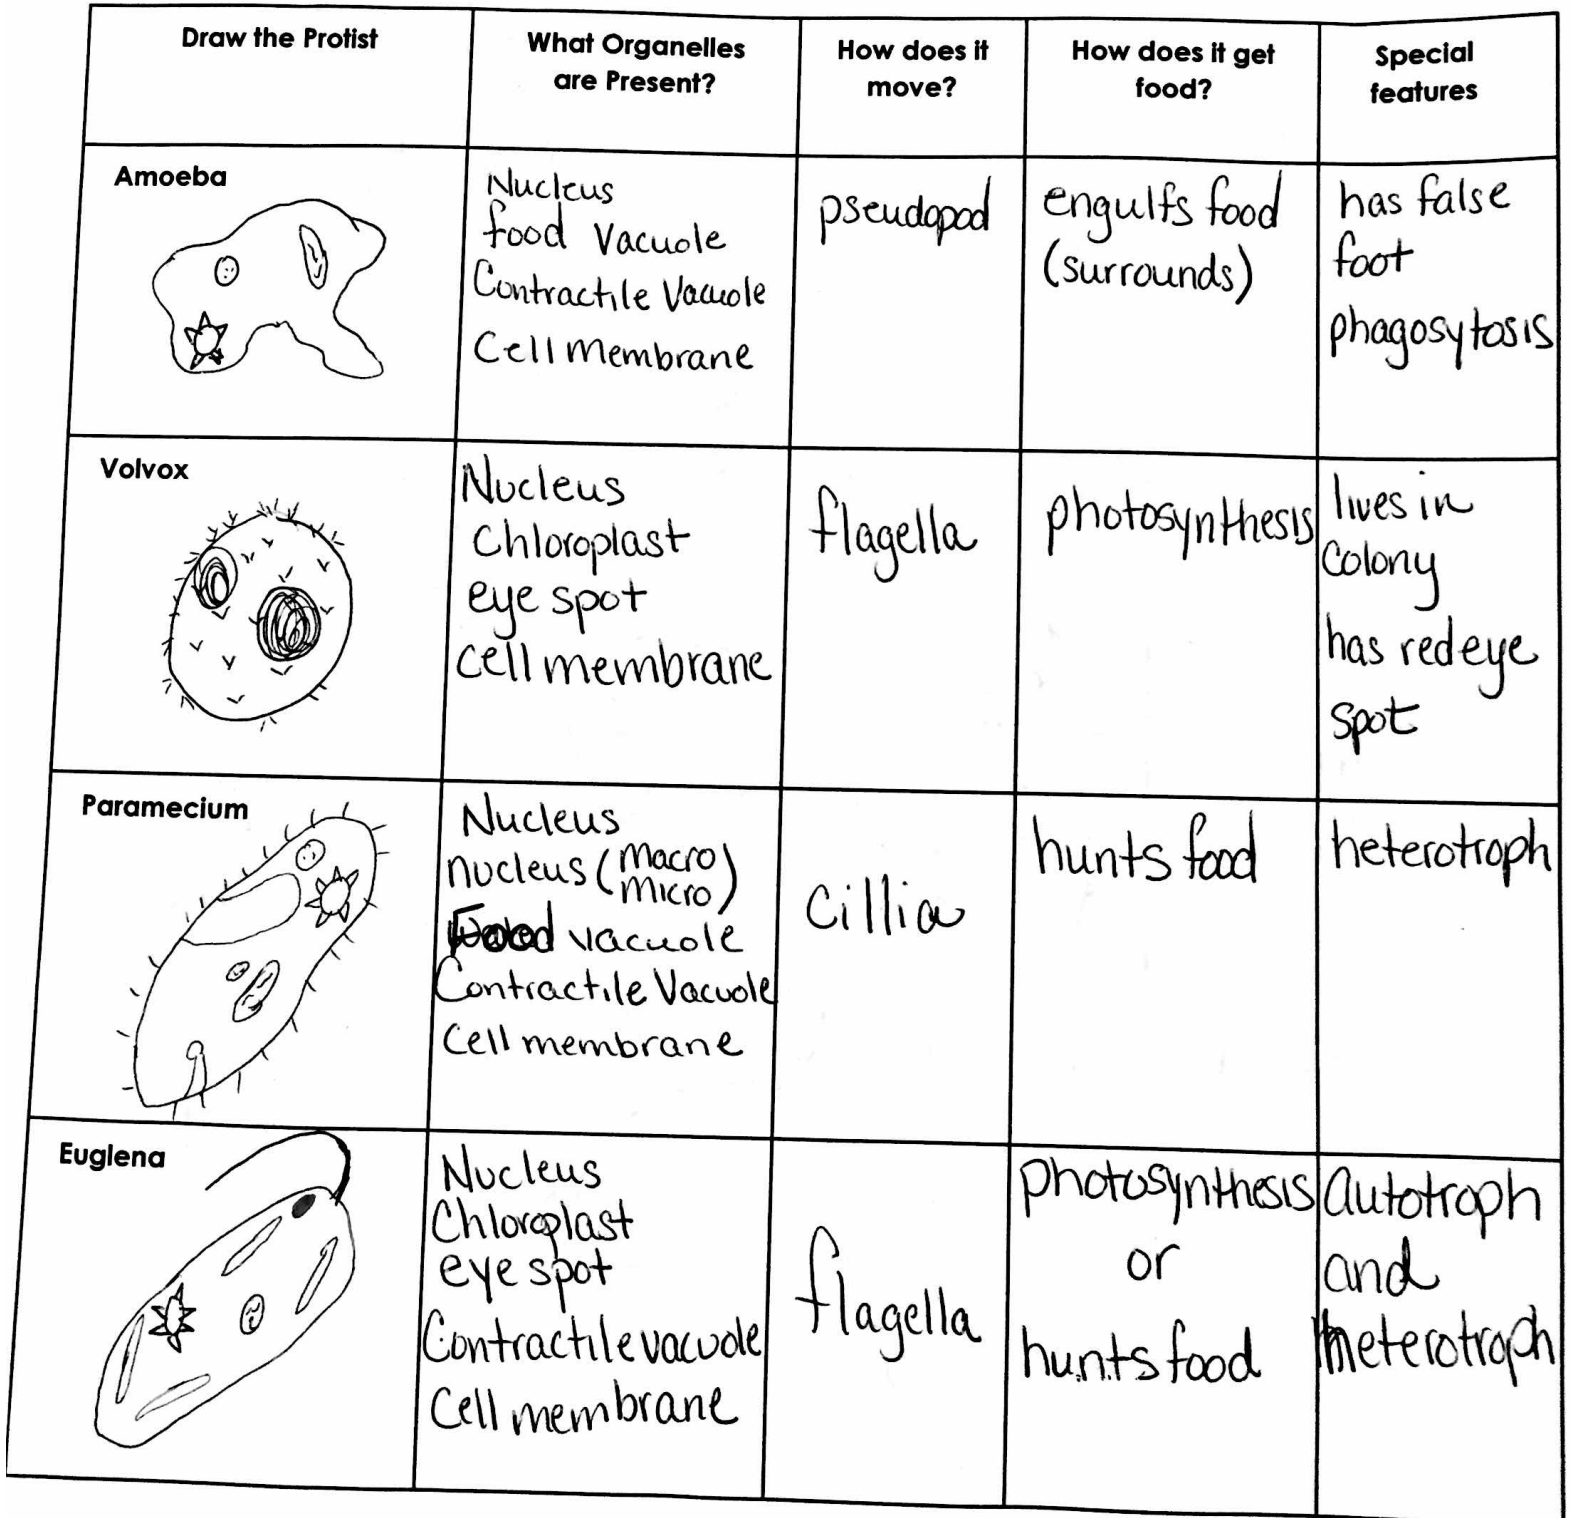 Draw the Protist
What Organelles
are Present?
How does it
move?
How does it get
food?
Special
features
Amoeba
Nucleus
food Vacuole
Contractile Vacuole
Cell Membrane
pseudopod
engulfs food
(surrounds)
has false
foot
phagosytosis
Volvox
Nucleus
Chloroplast
eye spot
Cell membrane
flagella
photosynthesis
lives in
Colony
has red eye
spot
Paramecium
Nucleus
nucleus (macro
micro)
Food vacuole
Contractile Vacuole
Cell membrane
Cillia
hunts food
heterotroph
Euglena
Nucleus
Chloroplast
eye spot
Contractile vacuole
Cell membrane
flagella
photosynthesis
or
hunts food
Autotroph
and
heterotroph